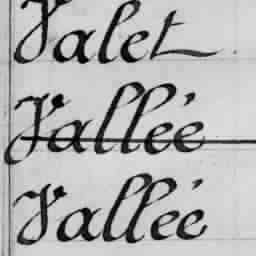 Valet
Vallée
Vallée